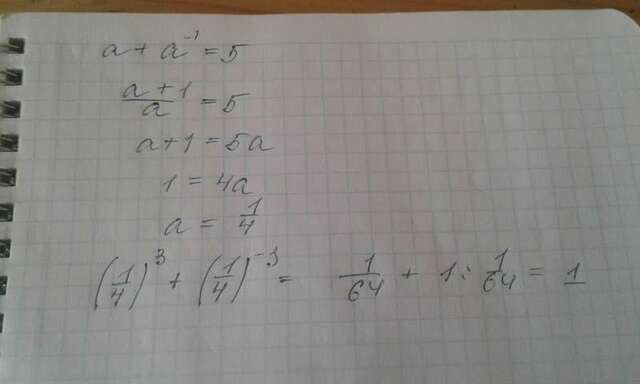 a + a⁻¹ = 5
(a + 1)/a = 5
a + 1 = 5a
1 = 4a
a = 1/4
(1/4)³ + (1/4)⁻³ = 1/64 + 1 : 1/64 = 1